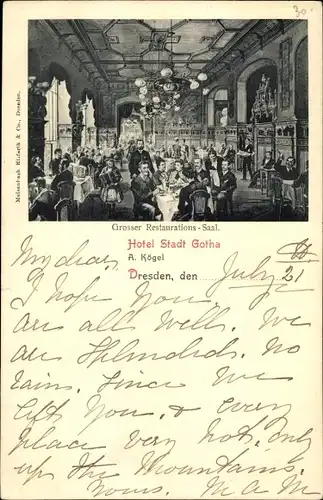 30.
Meissenbach Riffarth & Co., Dresden.
Grosser Restaurations-Saal.
Hotel Stadt Gotha
A. Kögel
Dresden, den July 21
My dear
I hope you
are all well. We
are splendid. No
rains. Since we
left you, & every
place very hot, only
up the Mountains.
Yours. M. a. M